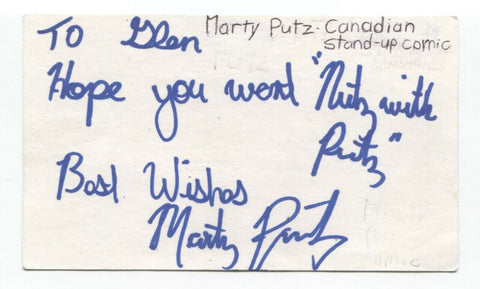 Marty Putz - Canadian
stand-up comic
To Glen
Hope you went "Nutz with
Putz"
Best Wishes
Marty Putz